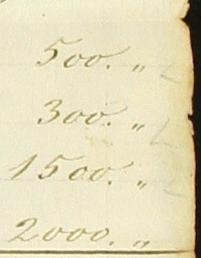 500. „
300. „
1500. „
2000. „